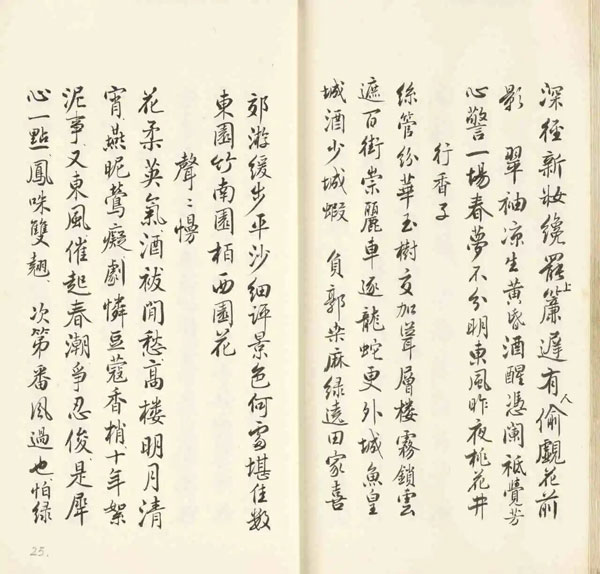 深徑新妝纔罷上簾遲有人偷覷花前
影 翠袖涼生黃昏酒醒憑闌祇覺芳
心警一場春夢不分明東風昨夜桃花井
行香子
絲管紛華玉樹交加聳層樓霧鎖雲
遮百街崇麗車逐龍蛇更外城魚皇
城酒少城蝦 負郭桑麻綠遠田家喜
郊游緩步平沙細評景色何處堪佳數
東園竹南園柏西園花
聲〻慢
花柔英氣酒祓閒愁高樓明月清
宵燕昵鶯癡劇憐豆蔻香梢十年絮
泥事又東風催起春潮爭忍俊是犀
心一點鳳咮雙翹 次第番風過也怕綠
25.